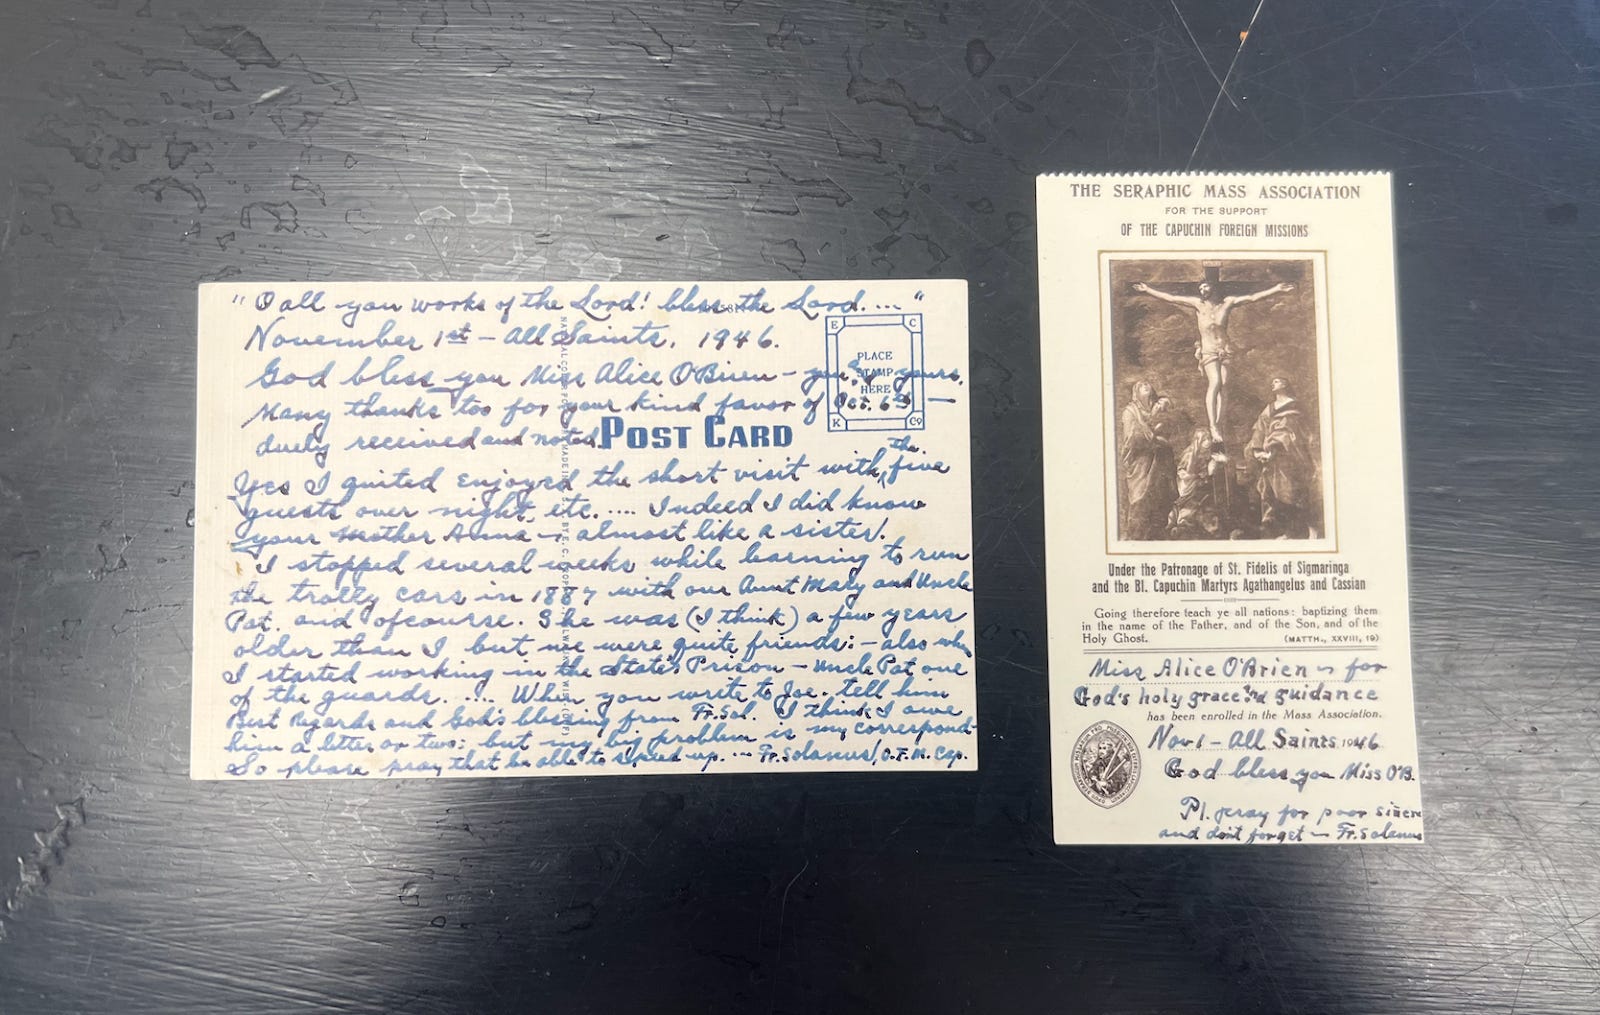 " O all you works of the Lord! bless the Lord.... "
November 1st – All Saints, 1946.
God bless you Miss Alice O'Brien – you & yours.
Many thanks too for your kind favor of Oct. 6th —
duely received and noted
Yes I quited enjoyed the short visit with the five
guests over night, etc. .... Indeed I did know
your mother Anna – almost like a sister!
I stopped several weeks while learning to run
the trolly cars in 1887 with our Aunt Mary and Uncle
Pat. and ofcourse. She was (I think) a few years
older than I but we were quite friends: – also when
I started working in the State's Prison – Uncle Pat one
of the guards. .... When you write to Joe. tell him
Best Regards and God's blessing from Fr. Sol. I think I owe
him a letter or two: but my big problem is my correspond-
So please pray that be able to speed up. -- Fr. Solanus, O.F.M. Cap.
POST CARD
E C
PLACE
STAMP
HERE
K Co
THE SERAPHIC MASS ASSOCIATION
FOR THE SUPPORT
OF THE CAPUCHIN FOREIGN MISSIONS
Under the Patronage of St. Fidelis of Sigmaringa
and the Bl. Capuchin Martyrs Agathangelus and Cassian
Going therefore teach ye all nations: baptizing them
in the name of the Father, and of the Son, and of the
Holy Ghost. (MATTH., XXVIII, 19)
Miss Alice O'Brien is for
God's holy grace and guidance
has been enrolled in the Mass Association.
Nov 1 – All Saints 1946
God bless you Miss O'B.
Pl. pray for poor sinners
and don't forget – Fr. Solanus